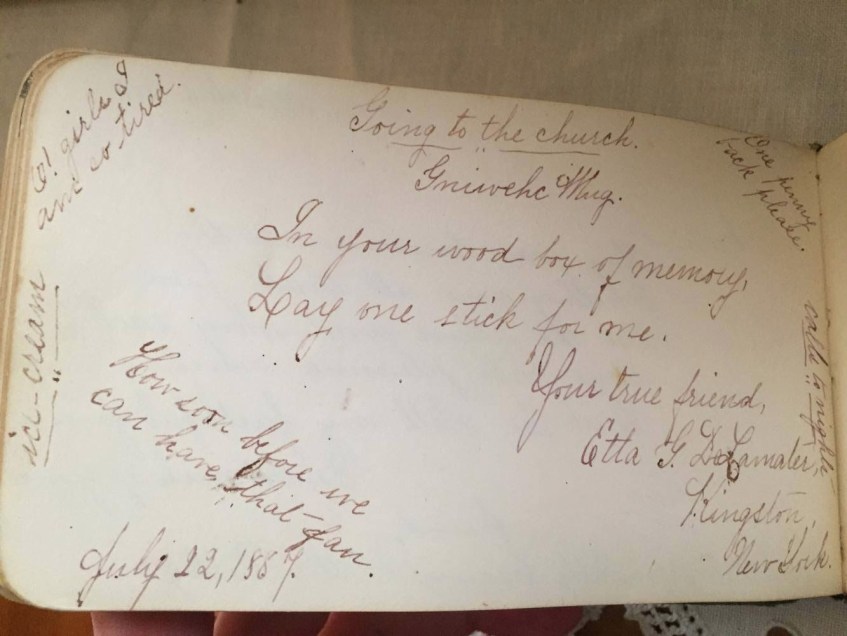 O! girls I
am so tired.
Going to the church.
Gniwehc Mug.
One penny
pack please.
In your wood box of memory,
Lay one stick for me.
Your true friend,
Etta G. DeLamater,
Kingston,
New York.
calls to night
ice-cream
How soon before we
can have that fan.
July 22, 1887.